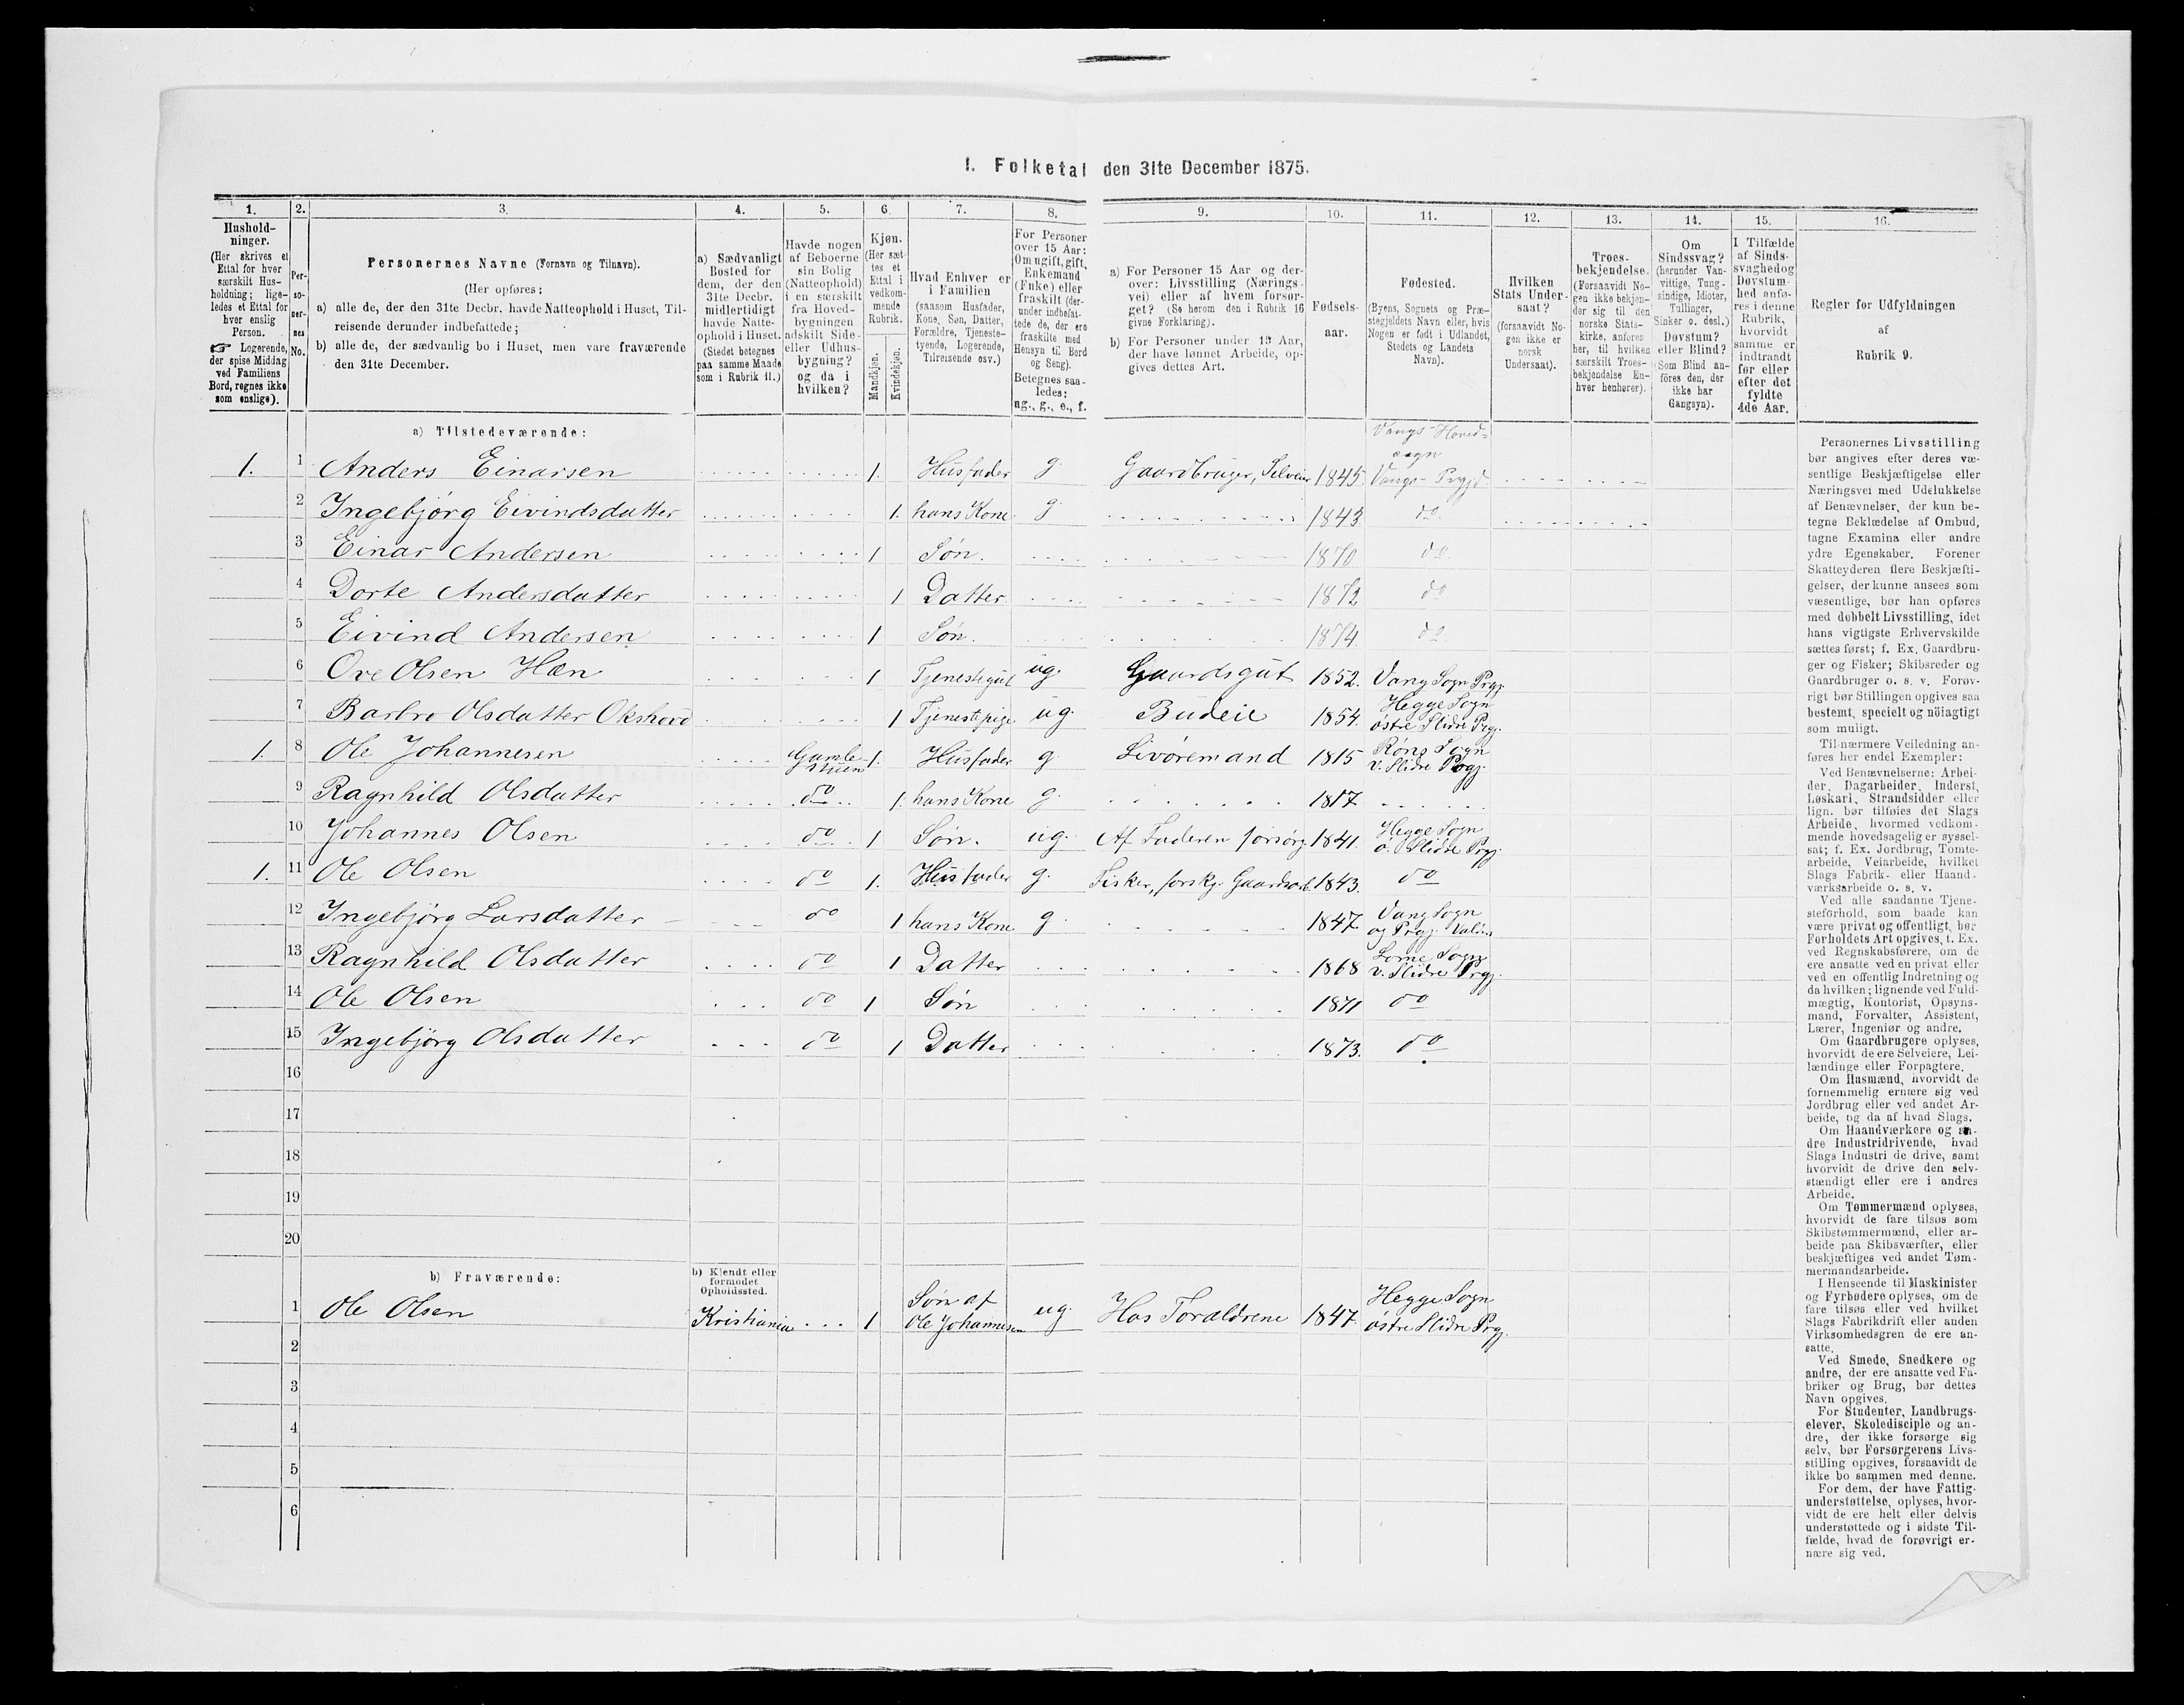 I. Folketal den 31te December 1875.
1. 2. 3. 4. 5. 6. 7. 8. 9. 10. 11. 12. 13. 14. 15. 16.
Hushold-
ninger.
(Her skrives et
Ettal for hver
særskilt Hus-
holdning; lige-
ledes et Ettal for
hver enslig
Person.
☞ Logerende,
der spise Middag
ved Familiens
Bord, regnes ikke
som enslige).
Per-
so-
ner-
nes
No.
Personernes Navne (Fornavn og Tilnavn).
(Her opføres:
a) alle de, der den 31te Decbr. havde Natteophold i Huset, Til-
reisende derunder indbefattede;
b) alle de, der sædvanlig bo i Huset, men vare fraværende
den 31te December.
a) Sædvanligt
Bosted for
dem, der den
31te Decbr.
midlertidigt
havde Natte-
ophold i Huset.
(Stedet betegnes
paa samme Maade
som i Rubrik 11.)
Havde nogen
af Beboerne
sin Bolig
(Natteophold)
i en særskilt
fra Hoved-
bygningen
adskilt Side-
eller Udhus-
bygning?
og da i
hvilken?
Kjøn.
(Her sæt-
tes et
Ettal i
vedkom-
mende
Rubrik.
Mandkjøn.
Kvindekjøn.
Hvad Enhver er
i Familien
(saasom Husfader,
Kone, Søn, Datter,
Forældre, Tjeneste-
tyende, Logerende,
Tilreisende osv.)
For Personer
over 15 Aar:
Om ugift, gift,
Enkemand
(Enke) eller
fraskilt (der-
under indbefat-
tede de, der ere
fraskilte med
Hensyn til Bord
og Seng).
Betegnes saa-
ledes:
ug., g., e., f.
a) For Personer 15 Aar og der-
over: Livsstilling (Nærings-
vei) eller af hvem forsør-
get? (Se herom den i Rubrik 16
givne Forklaring).
b) For Personer under 15 Aar,
der have lønnet Arbeide, op-
gives dettes Art.
Fødsels-
aar.
Fødested.
(Byens, Sognets og Præ-
stegjeldets Navn eller, hvis
Nogen er født i Udlandet,
Stedets og Landets
Navn).
Hvilken
Stats Under-
saat?
(forsaavidt No-
gen ikke er
norsk
Undersaat).
Troes-
bekjendelse.
(Forsaavidt No-
gen ikke bekjen-
der sig til den
norske Stats-
kirke, anføres
her, til hvilken
særskilt Troes-
bekjendelse En-
hver henhører).
Om
Sindssvag?
(herunder Van-
vittige, Tung-
sindige, Idioter,
Tullinger,
Sinker o. desl.)
Døvstum?
eller Blind?
(Som Blind an-
føres den, der
ikke har
Gangsyn).
I Tilfælde
af Sinds-
svaghed og
Døvstum-
hed anfø-
res i denne
Rubrik,
hvorvidt
samme er
indtraadt
før eller
efter det
fyldte
4de Aar.
Regler for Udfyldningen
af
Rubrik 9.
a) Tilstedeværende:
1. 1 Anders Einarsen 1. Husfader g. Gaardbruger, Selveier 1845 Vangs Hoved-sogn Vangs Prgjd.
2 Ingebjörg Eivindsdatter 1. hans Kone g. 1843. do
3 Einar Andersen 1 Søn. 1870 do
4 Dorte Andersdatter 1 Datter 1872 do
5 Eivind Andersen 1 Søn. 1874. do
6 Ove Olsen Hæn 1 Tjenestegut ug. Gaardsgut 1852. Vang Sogn Prgj.
7 Barbro Olsdatter 1 Tjenestepige ug. Budeie 1854. Hegge Sogn östre Slidre Prgj.
1. 8 Ole Johannesen Gamlestuen 1. Husfader g. Livöremand 1815 Röns Sogn v. Slidre Prgj.
9 Ragnhild Olsdatter do 1. hans Kone g. 1817.
10 Johannes Olsen do 1 Søn. ug. Af Faderen forsörg. 1841. Hegge Sogn ö. Slidre Prgj.
1. 11 Ole Olsen do 1. Husfader g. Fisker, forskj. Gaardsarb. 1843. do
12 Ingebjörg Larsdatter do 1 hans Kone g. 1847. Vang Sogn og Prgj. Valdrs
13 Ragnhild Olsdatter do 1 Datter 1868 Lome Sogn v. Slidre Prgj.
14 Ole Olsen do 1 Søn 1871 do
15 Ingebjörg Olsdatter do 1 Datter 1873. do
16
17
18
19
20
b) Fraværende:
b) Kjendt eller
formodet
Opholdssted.
1 Ole Olsen Kristiania 1 Søn af Ole Johannesen ug. Hos Foraldrene 1847. Hegge Sogn östre Slidre Prgj.
2
3
4
5
6
Personernes Livsstilling
bør angives efter deres væ-
sentlige Beskjæftigelse eller
Næringsvei med Udelukkelse
af Benævnelser, der kun be-
tegne Beklædelse af Ombud,
tagne Examina eller andre
ydre Egenskaber. Forener
Skatteyderen flere Beskjæfti-
gelser, der kunne ansees som
væsentlige, bør han opføres
med dobbelt Livsstilling, idet
hans vigtigste Erhvervskilde
sættes først; f. Ex. Gaardbru-
ger og Fisker; Skibsreder og
Gaardbruger o. s. v. Forøv-
rigt bør Stillingen opgives saa
bestemt, specielt og nöiagtigt
som muligt.
Til nærmere Veiledning an-
føres her endel Exempler:
Ved Benævnelserne: Arbei-
der, Dagarbeider, Inderst,
Løskari, Strandsidder eller
lign. bør tilføies det Slags
Arbeide, hvormed vedkom-
mende hovedsagelig er syssel-
sat; f. Ex. Jordbrug, Tomte-
arbeide, Veiarbeide, hvilket
Slags Fabrik- eller Haand-
værksarbeide o. s. v.
Ved alle saadanne Tjene-
steförhold, som baade kan
være privat og offentligt, bør
Forholdets Art opgives, t. Ex.
ved Regnskabsførere, om de
ere ansatte ved en privat eller
ved en offentlig Indretning og
da hvilken; lignende ved Fuld-
mægtig, Kontorist, Opsyns-
mand, Forvalter, Assistent,
Lærer, Ingeniør og andre.
Om Gaardbrugere oplyses,
hvorvidt de ere Selveiere, Lei-
lændinge eller Forpagtere.
Om Husmænd, hvorvidt de
fornemmelig ernære sig ved
Jordbrug eller ved andet Ar-
beide, og da af hvad Slags.
Om Haandværkere og an-
dre Industridrivende, hvad
Slags Industri de drive, samt
hvorvidt de drive den selv-
stændigt eller ere i andres
Arbeide.
Om Tømmermænd oplyses,
hvorvidt de fare tilsøs som
Skibstømmermænd, eller ar-
beide paa Skibsværfter, eller
beskjæftiges ved andet Tøm-
mermandsarbeide.
I Henseende til Maskinister
og Fyrbødere oplyses, om de
fare tilsøs eller ved hvilket
Slags Fabrikdrift eller anden
Virksomhedsgren de ere an-
satte.
Ved Smede, Snedkere og
andre, der ere ansatte ved Fa-
briker og Brug, bør dettes
Navn opgives.
For Studenter, Landbrugs-
elever, Skoledisciple og an-
dre, der ikke forsørge sig
selv, bør Forsørgerens Livs-
stilling opgives, forsaavidt de
ikke bo sammen med denne.
For dem, der have Fattig-
understøttelse, oplyses, hvor-
vidt de ere helt eller delvis
understøttede og i sidste Til-
fælde, hvad de forøvrigt er-
nære sig ved.